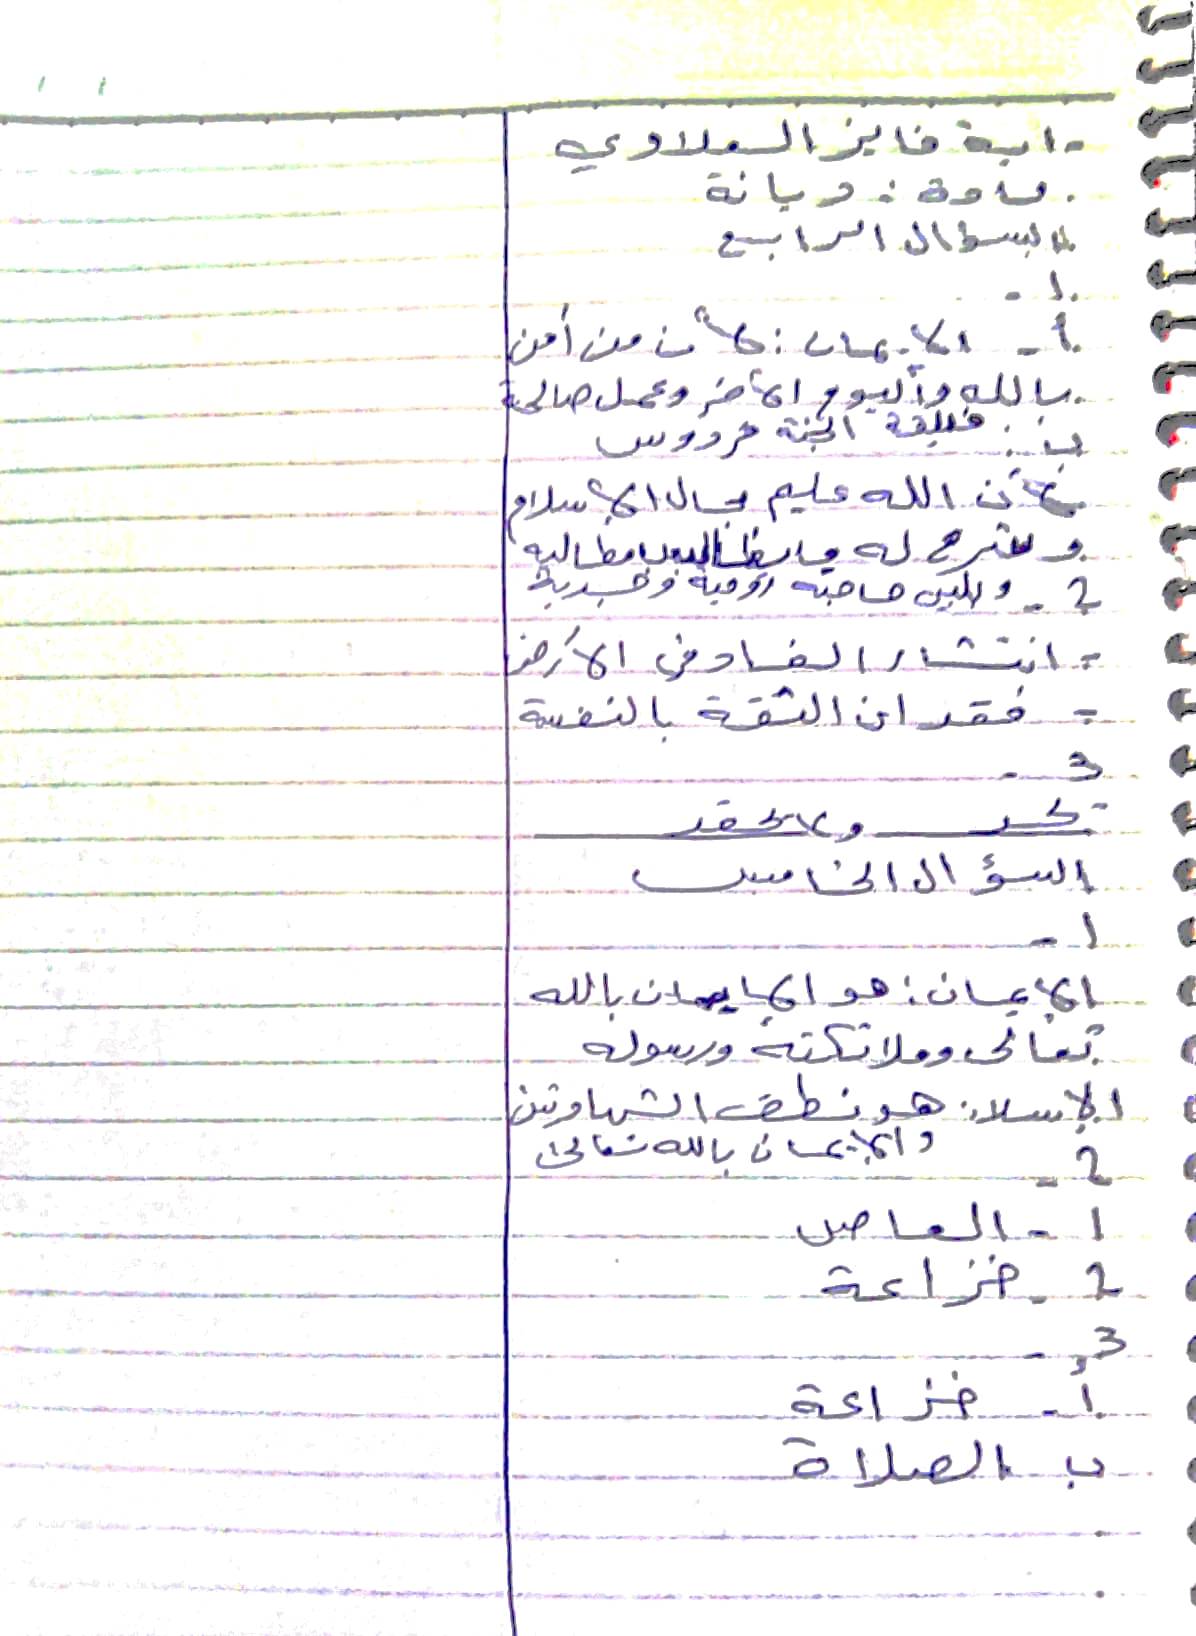 - اية فايز السعلاوي
مادة : ديانة
السؤال الرابع
1 -
أ - الايمان : لأن من أمن
بالله واليوم الأخر وعمل صالحة
فليقة الجنة فردوس
ب -
لأن الله عليم بحال الأسلام
و له
2 - ولمين صاحبه
- انتشار الفساد في الأرض
- فقدان الثقة بالنفسة
3 -
السؤال الخامس
1 -
الإيمان : هو الإيمان بالله
تعالى وملائكته ورسوله
الإسلا : هو نطق الشهادتين
والإيمان بالله تعالى
2 -
1 - العاص
2 - خزاعة
3 -
أ - خزاعة
ب الصلاة